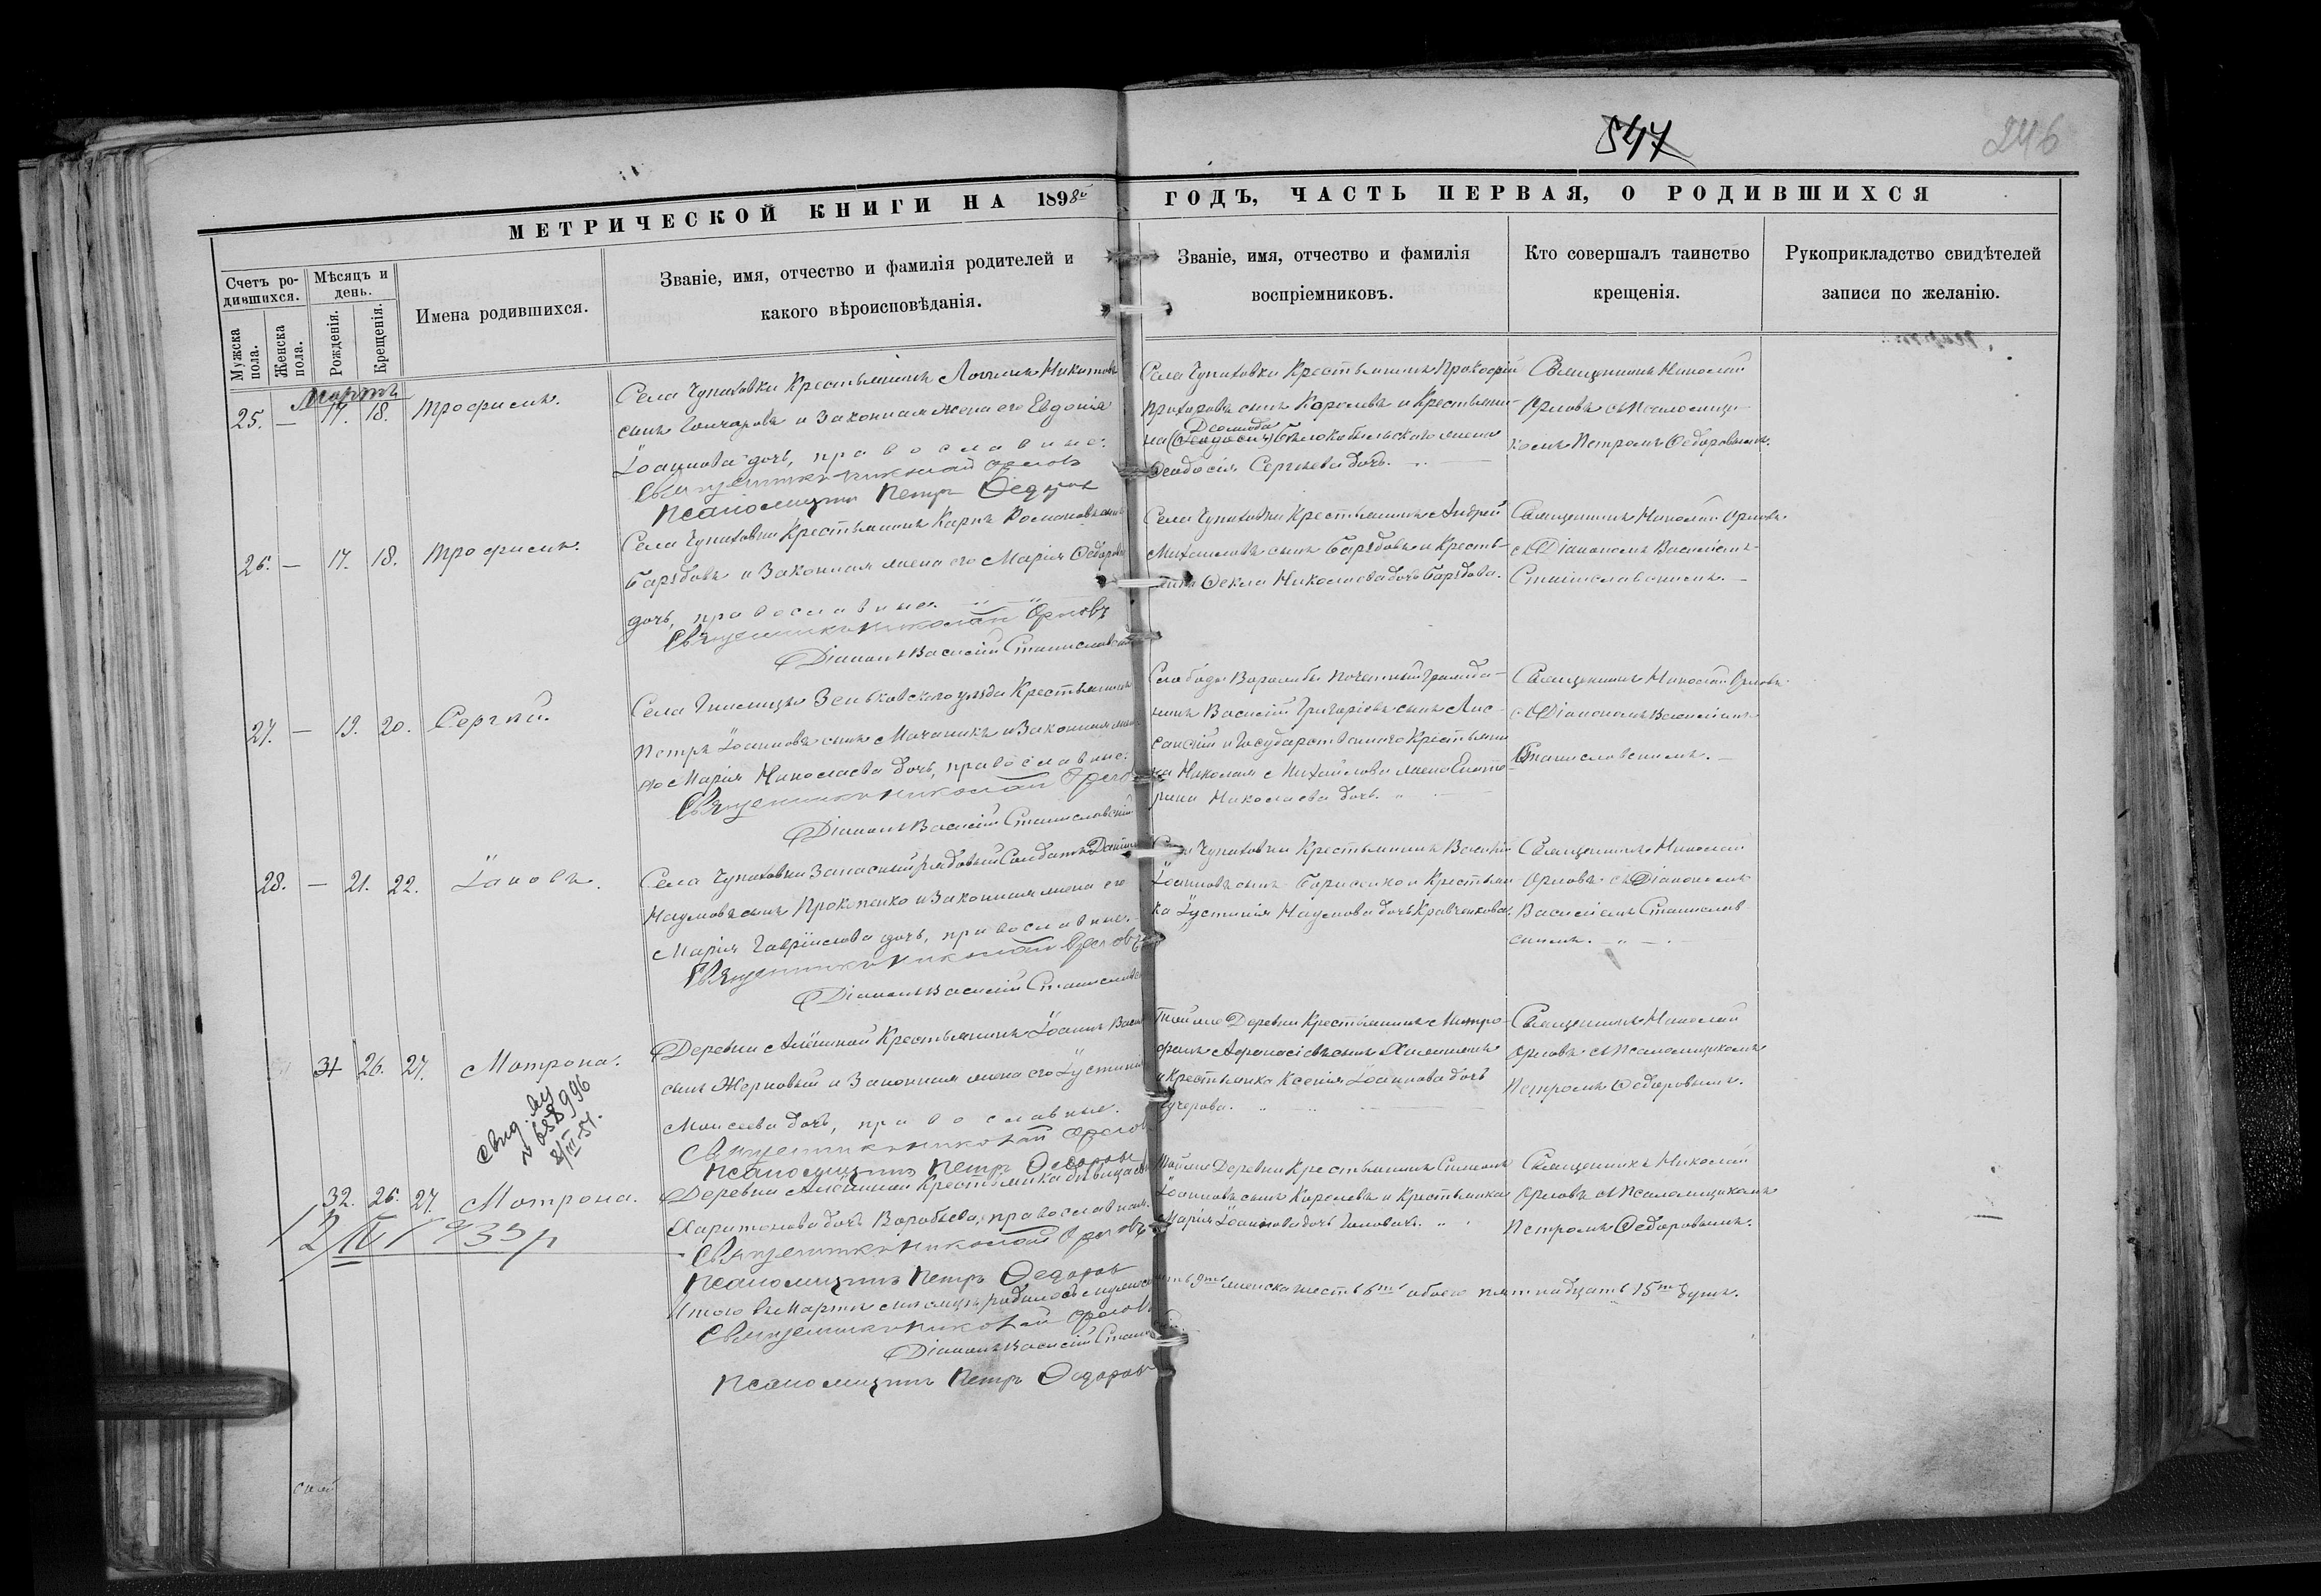 547
246
МЕТРИЧЕСКОЙ КНИГИ НА 1898й ГОДЪ, ЧАСТЬ ПЕРВАЯ, О РОДИВШИХСЯ
Счетъ ро-
дившихся.
Мужска пола.
Женска пола.
Мѣсяцъ и день.
Рожденія.
Крещенія.
Имена родившихся.
Званіе, имя, отчество и фамилія родителей и
какого вѣроисповѣданія.
Званіе, имя, отчество и фамилія
воспріемниковъ.
Кто совершалъ таинство
крещенія.
Рукоприкладство свидѣтелей
записи по желанію.
Мартъ
25. — 17. 18. Трофимъ.
Села Чупаховки Крестьянинъ Логинъ Никитовъ
сынъ Гончаровъ и Законная жена его Евдокія
Іоаннова дочь, православные.
Священникъ Николай Орловъ
Псаломщикъ Петръ Ѳедоровъ
Села Чупаховки Крестьянинъ Прокофій
Прохоровъ сынъ Королевъ и Крестьяни-
на Бѣлокобыльскаго жена
Ѳеодосія Сергѣева дочь.
Священникъ Николай
Орловъ съ Псаломщи-
комъ Петромъ Ѳедоровымъ.
26. — 17. 18. Трофимъ.
Села Чупаховки Крестьянинъ Карпъ Романовъ сынъ
Барябовъ и Законная жена его Марія Ѳедорова
дочь, православные.
Священникъ Николай Орловъ
Діаконъ Василій Станиславскій
Села Чупаховки Крестьянинъ Андрей
Михаиловъ сынъ Барябовъ и Кресть-
янка Ѳекла Николаева дочь Барябова.
Священникъ Николай Орловъ
съ Діакономъ Василіемъ
Станиславскимъ.
27. — 19. 20. Сергѣй.
Села Зеньковскаго уѣзда Крестьянинъ
Петръ Іоанновъ сынъ и Законная жена
его Марія Николаева дочь, православные.
Священникъ Николай Орловъ
Діаконъ Василій Станиславскій
Слободы Ворожбы почетный гражда-
нинъ Василій Григоріевъ сынъ Лис-
санскій и Государственнаго Крестьяни
на Николая Михайлова жена Екате
рина Николаева дочь.
Священникъ Николай Орловъ
съ Діакономъ Василіемъ
Станиславскимъ.
28. — 21. 22. Іаковъ.
Села Чупаховки Запасный рядовый Солдатъ
Наумовъ сынъ Прокпенко и Законная жена его
Марія Гавріилова дочь, православные.
Священникъ Николай Орловъ
Діаконъ Василій Станиславскій
Села Чупаховки Крестьянинъ Василій
Іоанновъ сынъ Борисенко и Крестьян
ка Іустинія Наумова дочь Кравченкова.
Священникъ Николай
Орловъ съ Діакономъ
Василіемъ Станислав
скимъ.
31 26. 27. Матрона.
Свид.
№ 658996
8/III-51.
Деревни Алёшиной Крестьянинъ Іоаннъ
сынъ Жерновый и Законная жена его Іустинія
Моисеева дочь, православные.
Священникъ Николай Орловъ
Псаломщикъ Петръ Ѳедоровъ
Той же Деревни Крестьянинъ Митро-
фанъ Аѳанасіевъ сынъ
и Крестьянка Ксенія Іоаннова дочь
Кучерова.
Священникъ Николай
Орловъ съ Псаломщикомъ
Петромъ Ѳедоровымъ.
32. 26. 27. Матрона.
12/IV 1933 р
Деревни Алёшиной Крестьянка дѣвица
Харитонова дочь Воробьева, православная.
Священникъ Николай Орловъ
Псаломщикъ Петръ Ѳедоровъ
Той же Деревни Крестьянинъ Симеонъ
Іоанновъ сынъ Королевъ и Крестьянка
Марія Іоаннова дочь Головачъ.
Священникъ Николай
Орловъ съ Псаломщикомъ
Петромъ Ѳедоровымъ.
Итого въ Мартѣ мѣсяцѣ родилось мужеска 9ть женска шесть 6ть обоего пятнадцать 15ть душъ.
Священникъ Николай Орловъ
Діаконъ Василій
Псаломщикъ Петръ Ѳедоровъ